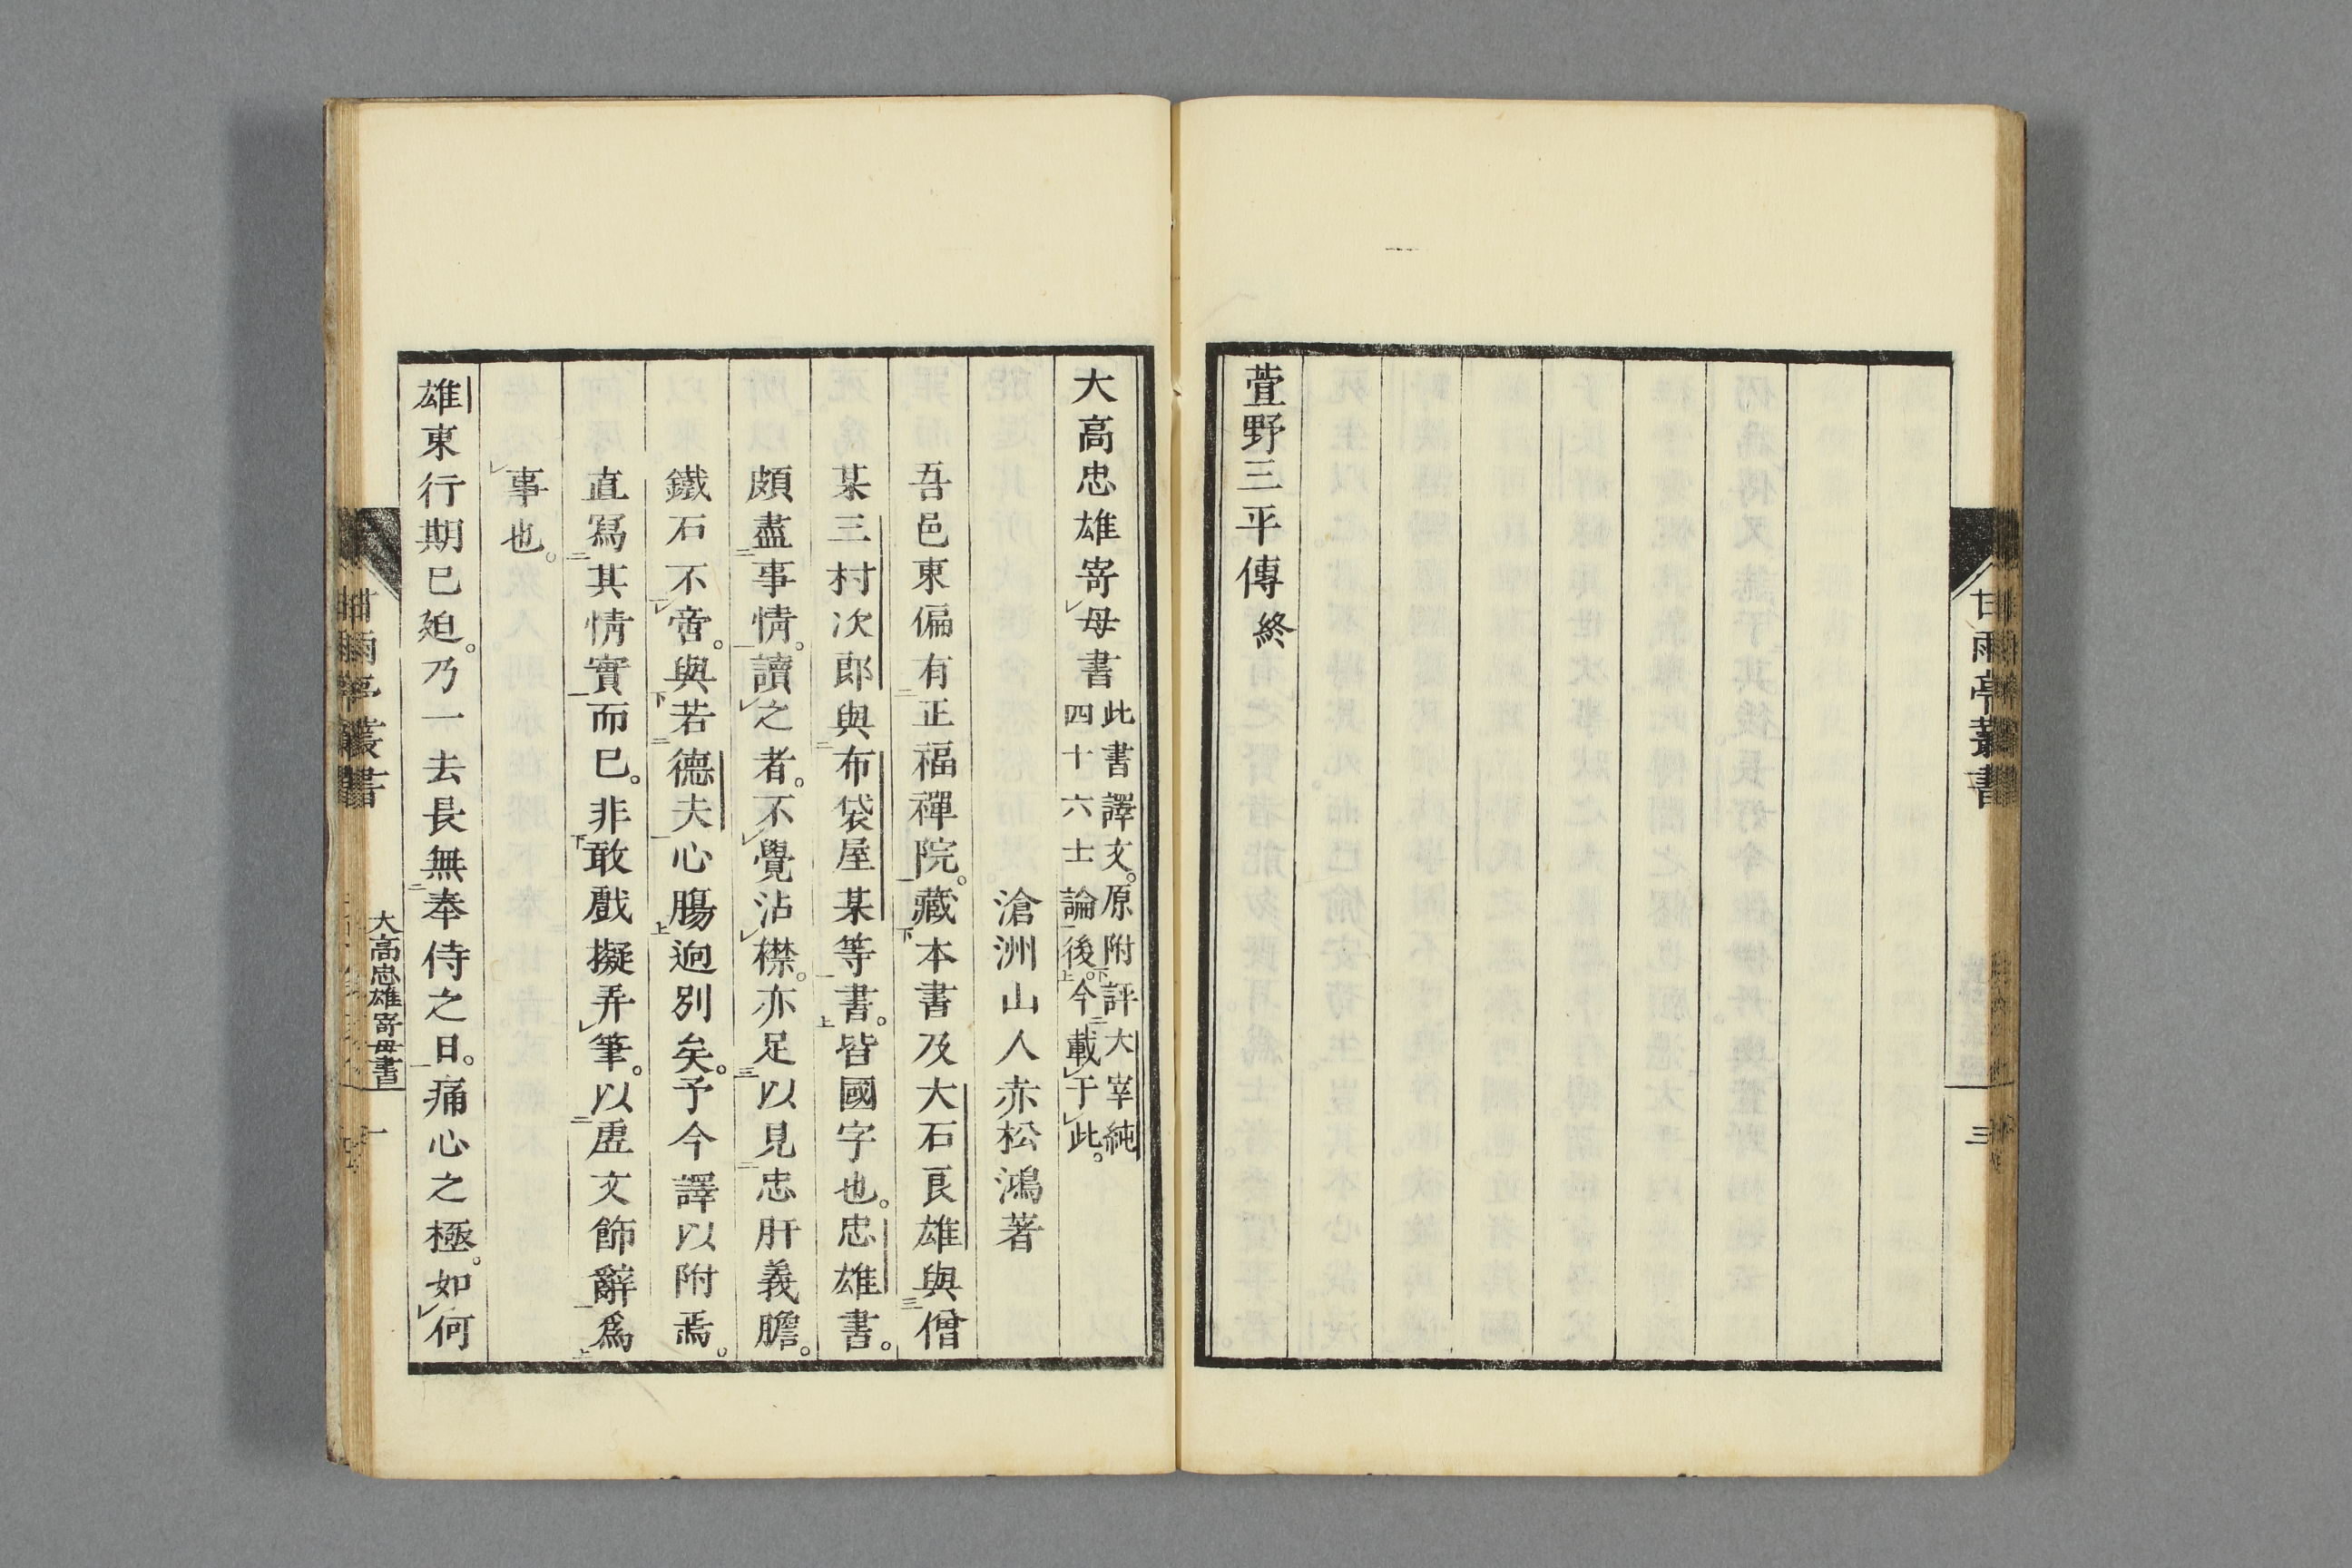 萱野三平傳終
甘雨亭叢書
三
大高忠雄寄母書
此書譯文。原附評大宰純
四十六士論後。今載于此。
滄洲山人赤松鴻著
吾邑東偏有正福禪院。藏本書及大石良雄與僧
某三村次郎與布袋屋某等書。皆國字也。忠雄書。
頗盡事情。讀之者。不覺沾襟。亦足以見忠肝義膽。
鐵石不啻。與若德夫心腸逈別矣。予今譯以附焉。
直寫其情實而已。非敢戲擬弄筆。以虛文飾辭爲
事也。
雄東行期已廹。乃一去長無奉侍之日。痛心之極。如何
甘雨亭叢書
大高忠雄寄母書
一